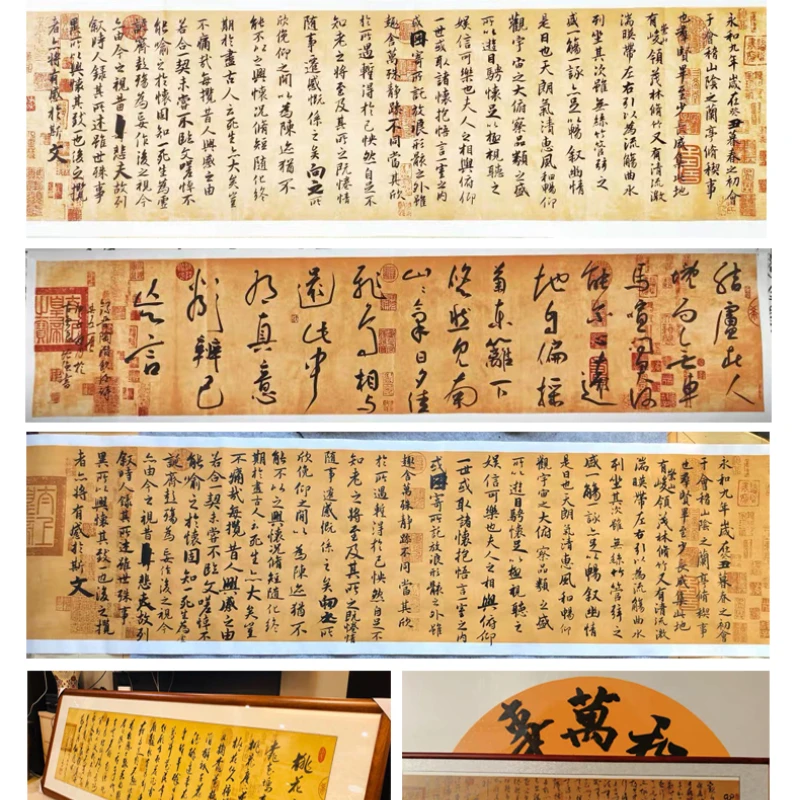 永和九年歲在癸丑暮春之初會
于會稽山陰之蘭亭脩稧事
也羣賢畢至少長咸集此地
有崇山峻領茂林脩竹又有清流激
湍暎帶左右引以為流觴曲水
列坐其次雖無絲竹管弦之
盛一觴一詠亦足以暢叙幽情
是日也天朗氣清惠風和暢仰
觀宇宙之大俯察品類之盛
所以遊目騁懷足以極視聽之
娛信可樂也夫人之相與俯仰
一世或取諸懷抱悟言一室之內
或因寄所託放浪形骸之外雖
趣舍萬殊靜躁不同當其欣
於所遇蹔得於己快然自足不
知老之將至及其所之既惓情
隨事遷感慨係之矣向之所
欣俛仰之間以為陳迹猶不
能不以之興懷況脩短隨化終
期於盡古人云死生亦大矣豈
不痛哉每攬昔人興感之由
若合一契未嘗不臨文嗟悼不
能喻之於懷固知一死生為虛
誕齊彭殤為妄作後之視今
亦由今之視昔悲夫故列
叙時人錄其所述雖世殊事
異所以興懷其致一也後之攬
者亦將有感於斯文
結廬在人
境而無車
馬喧問君何
能爾心遠
地自偏採
菊東籬下
悠然見南
山山氣日夕佳
飛鳥相與
還此中
有真意
欲辨已
忘言
永和九年歲在癸丑暮春之初會
于會稽山陰之蘭亭脩稧事
也羣賢畢至少長咸集此地
有崇山峻領茂林脩竹又有清流激
湍暎帶左右引以為流觴曲水
列坐其次雖無絲竹管弦之
盛一觴一詠亦足以暢叙幽情
是日也天朗氣清惠風和暢仰
觀宇宙之大俯察品類之盛
所以遊目騁懷足以極視聽之
娛信可樂也夫人之相與俯仰
一世或取諸懷抱悟言一室之內
或因寄所託放浪形骸之外雖
趣舍萬殊靜躁不同當其欣
於所遇蹔得於己快然自足不
知老之將至及其所之既惓情
隨事遷感慨係之矣向之所
欣俛仰之間以為陳迹猶不
能不以之興懷況脩短隨化終
期於盡古人云死生亦大矣豈
不痛哉每攬昔人興感之由
若合一契未嘗不臨文嗟悼不
能喻之於懷固知一死生為
誕齊彭殤為妄作後之視今
亦由今之視昔悲夫故列
叙時人錄其所述雖世殊事
異所以興懷其致一也後之攬
者亦將有感於斯文
桃花
和萬事